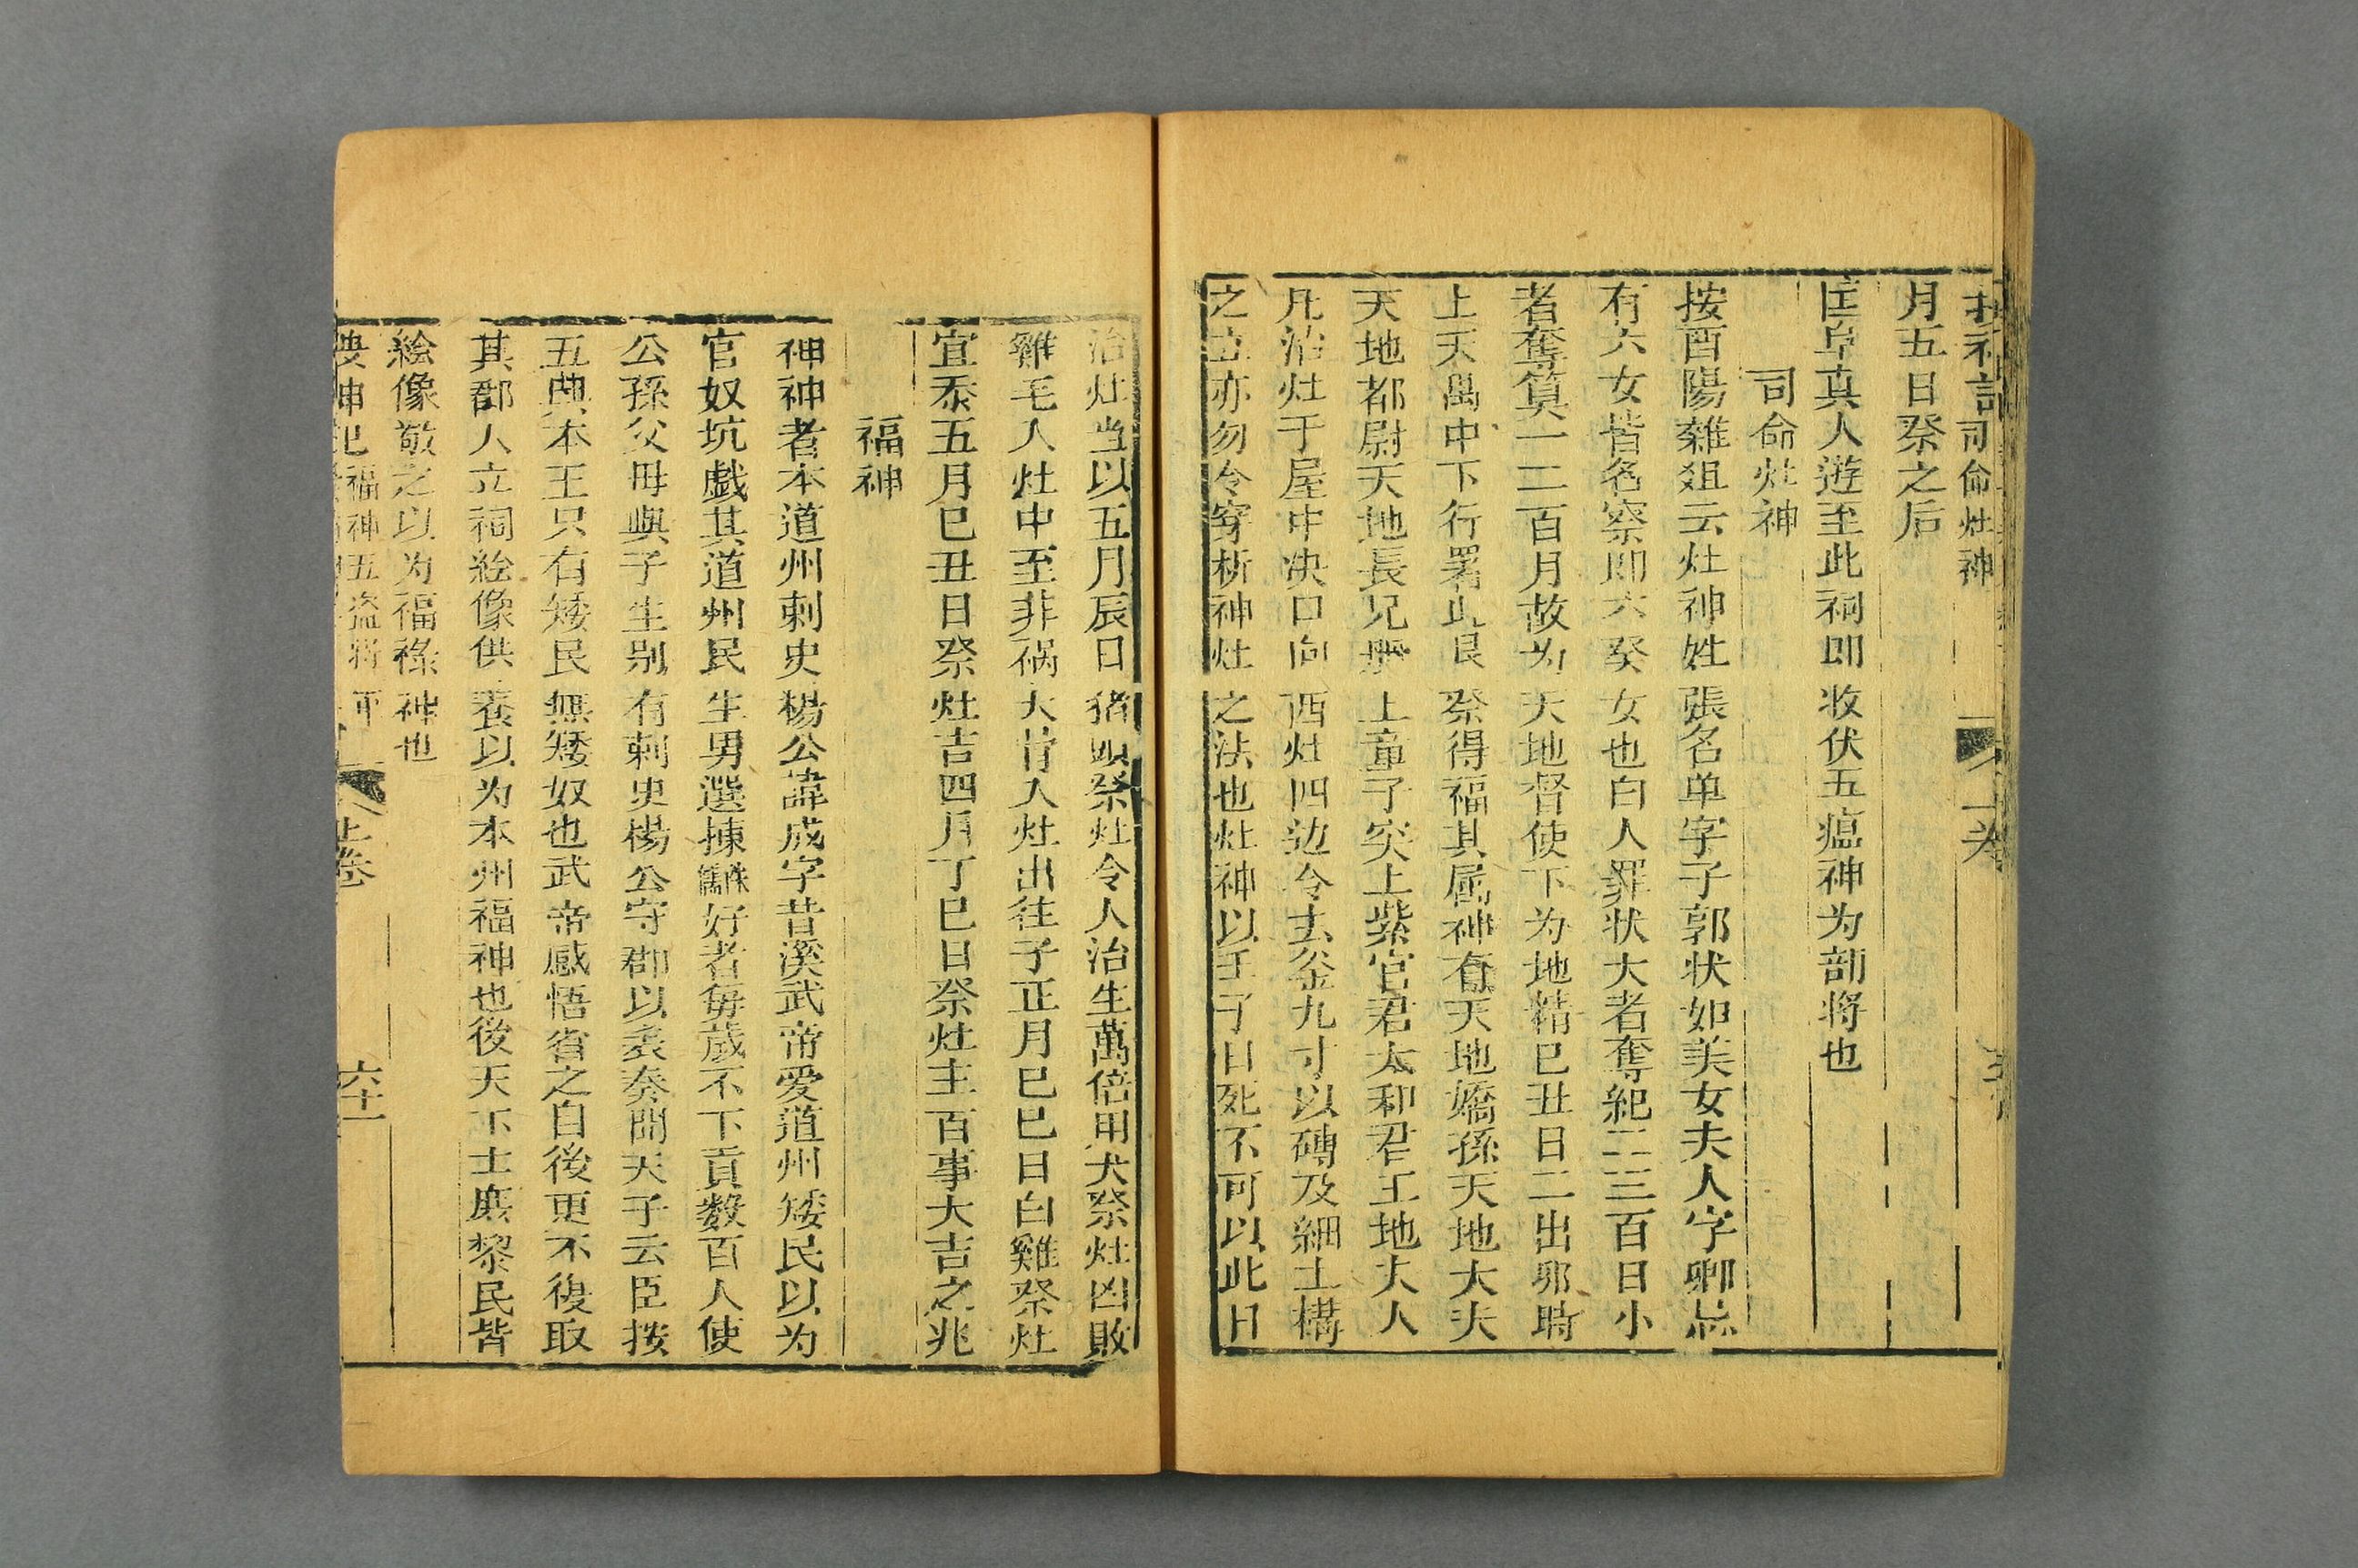 搜神記 司命灶神 一卷
月五日祭之后
匡阜真人遊至此祠即收伏五瘟神为部將也
司命灶神
按酉陽雜俎云灶神姓張名单字子郭状如美女夫人字卿忌
有六女皆名察即六癸女也白人罪状大者奪紀二三百日小
者奪算一二百月故为天地督使下为地精巳丑日二出夘時
上天萬中下行署此日祭得福其属神有天地嬌孫天地大夫
天地都尉天地長兄上童子突上紫官君太和君王地大人
凡治灶于屋中决口向西灶四边令去釜九寸以磚及細土構
之立亦勿令穿析神灶之法也灶神以壬子日死不可以此日
治灶当以五月辰日猪頭祭灶令人治生萬倍用犬祭灶凶敗
雞毛入灶中至非祸犬骨入灶出往子正月巳巳日白雞祭灶
宜泰五月巳丑日祭灶吉四月丁巳日祭灶主百事大吉之兆
福神
神神者本道州刺史楊公諱成字昔溪武帝愛道州矮民以为
官奴坑戯其道州民生男選揀侏儒好者每歲不下貢数百人使
公孫父母與子生别有刺史楊公守郡以表奏聞天子云臣按
五典本王只有矮民無矮奴也武帝感悟省之自後更不復取
其郡人立祠絵像供養以为本州福神也後天下士庶黎民皆
絵像敬之以为福祿神也
福神五盗将 上卷 六十一